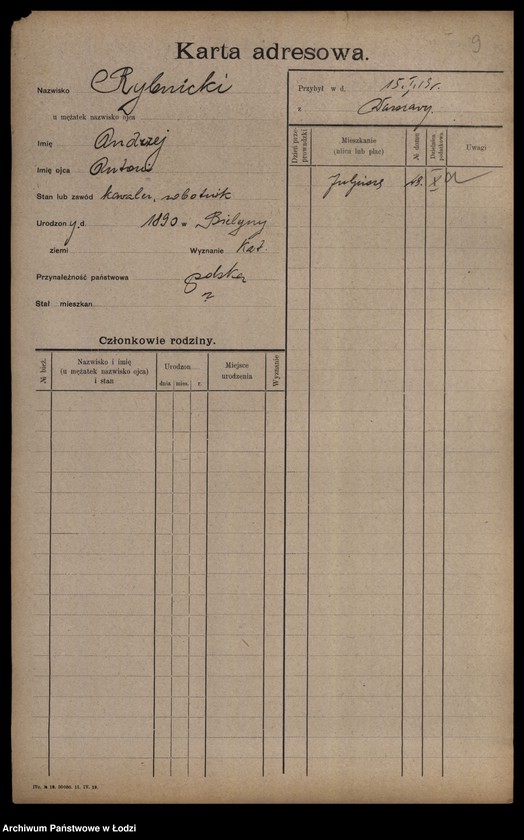 9
Karta adresowa.
Nazwisko Rybnicki
u mężatek nazwisko ojca
Imię Andrzej
Imię ojca Antoni
Stan lub zawód kawaler, robotnik
Urodzon y d. 1890 w Bielyny
ziemi Wyznanie Kat.
Przynależność państwowa polska
Stał mieszkan. ?
Przybył w d. 15.I.19 r.
z Warszawy
Dzień przeprowadzki
Mieszkanie (ulica lub plac)
№ domu
Dzielnica podatkowa.
Uwagi
19. X
Członkowie rodziny.
№ bież.
Nazwisko i imię
(u mężatek nazwisko ojca)
i stan
Urodzon
dnia mies. r.
Miejsce
urodzenia
Wyznanie
11. IV. 19.
Archiwum Państwowe w Łodzi